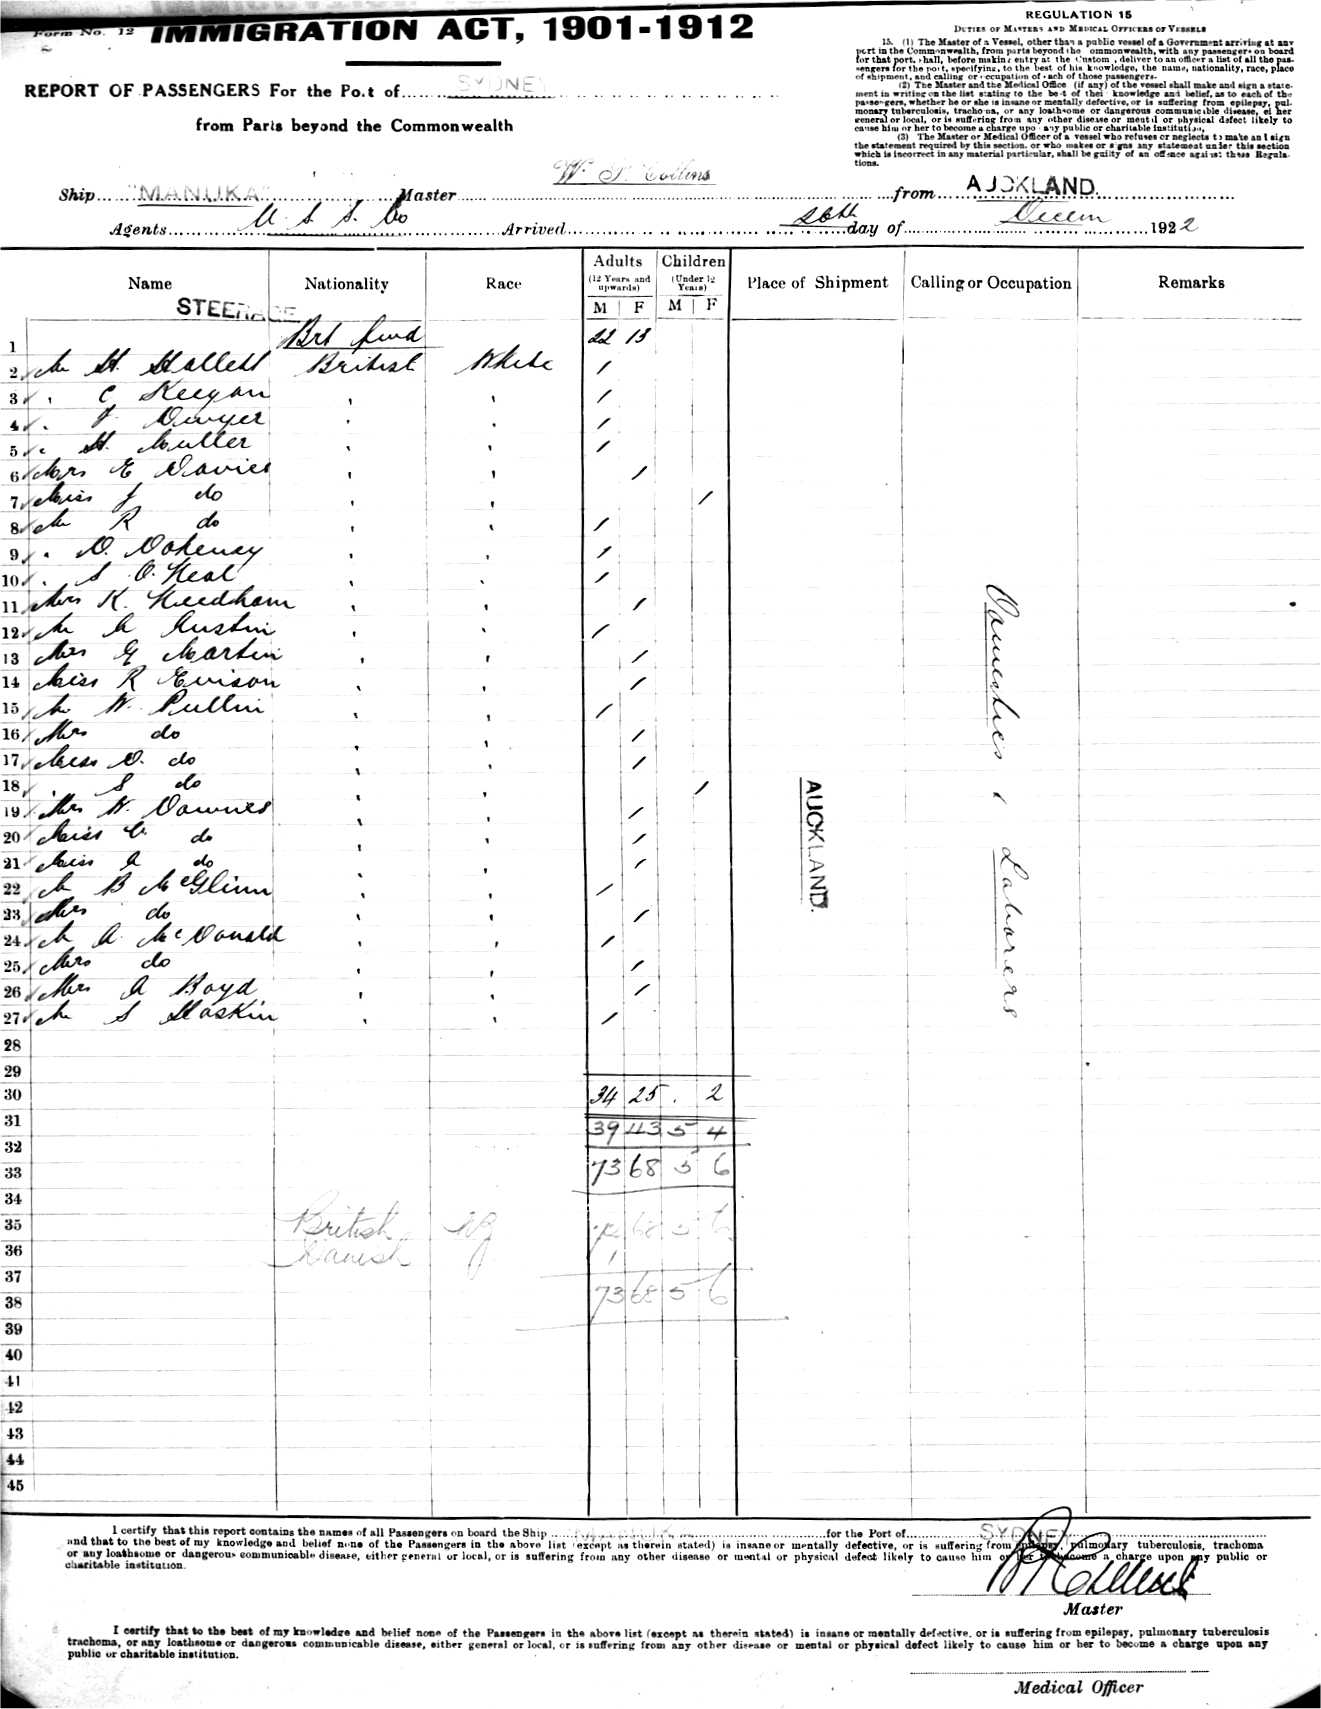 Form No. 12
IMMIGRATION ACT, 1901-1912
REPORT OF PASSENGERS For the Port of SYDNEY
from Parts beyond the Commonwealth
REGULATION 15
DUTIES OF MASTERS AND MEDICAL OFFICERS OF VESSELS
15. (1) The Master of a Vessel, other than a public vessel of a Government arriving at any
port in the Commonwealth, from parts beyond the Commonwealth, with any passengers on board
for that port, shall, before making entry at the Customs, deliver to an officer a list of all the pas-
sengers for the port, specifying, to the best of his knowledge, the name, nationality, race, place
of shipment, and calling or occupation of each of those passengers.
(2) The Master and the Medical Officer (if any) of the vessel shall make and sign a state-
ment in writing on the list stating to the best of their knowledge and belief, as to each of the
passengers, whether he or she is insane or mentally defective, or is suffering from epilepsy, pul-
monary tuberculosis, trachoma, or any loathsome or dangerous communicable disease, either
general or local, or is suffering from any other disease or mental or physical defect likely to
cause him or her to become a charge upon any public or charitable institution.
(3) The Master or Medical Officer of a vessel who refuses or neglects to make and sign
the statement required by this section, or who makes or signs any statement under this section
which is incorrect in any material particular, shall be guilty of an offence against these Regula-
tions.
Ship "MANUKA" Master W. J. Collins from AUCKLAND.
Agents U. S. S. Co Arrived 26th day of Decem 1922
Name Nationality Race Adults (12 Years and upwards) M F Children (Under 12 Years) M F Place of Shipment Calling or Occupation Remarks
STEERAGE
1 Brt fwd 22 13
2 Mr H. Hallett British White /
3 " C Keegan " " /
4 " J. Dwyer " " /
5 " H. Muller " " /
6 Mrs E Davies " " /
7 Miss J do " " /
8 Mr R do " " /
9 " D. Doheny " " /
10 " S O. Neal " " /
11 Mrs K. Needham " " /
12 Mr A Austin " " /
13 Mrs G Martin " " /
14 Miss R Evison " " /
15 Mr W. Pullin " " /
16 Mrs do " " /
17 Miss D. do " " /
18 " S do " " /
19 Mrs W. Downes " " /
20 Miss C. do " " /
21 Miss A do " " /
22 Mr B McGlinn " " /
23 Mrs do " " /
24 Mr A. McDonald " " /
25 Mrs do " " /
26 Mrs A Boyd " " /
27 Mr S Haskin " " /
AUCKLAND.
Domestics & Laborers
28
29
30 34 25 . 2
31 39 43 5 4
32
33 73 68 5 6
34
35 British 68 5 6
36 Danish 1
37
38 73 68 5 6
39
40
41
42
43
44
45
I certify that this report contains the names of all Passengers on board the Ship Manuka for the Port of SYDNEY
and that to the best of my knowledge and belief none of the Passengers in the above list (except as therein stated) is insane or mentally defective, or is suffering from epilepsy, pulmonary tuberculosis, trachoma
or any loathsome or dangerous communicable disease, either general or local, or is suffering from any other disease or mental or physical defect likely to cause him or her to become a charge upon any public or
charitable institution.
W J Collins
Master
I certify that to the best of my knowledge and belief none of the Passengers in the above list (except as therein stated) is insane or mentally defective, or is suffering from epilepsy, pulmonary tuberculosis
trachoma, or any loathsome or dangerous communicable disease, either general or local, or is suffering from any other disease or mental or physical defect likely to cause him or her to become a charge upon any
public or charitable institution.
Medical Officer